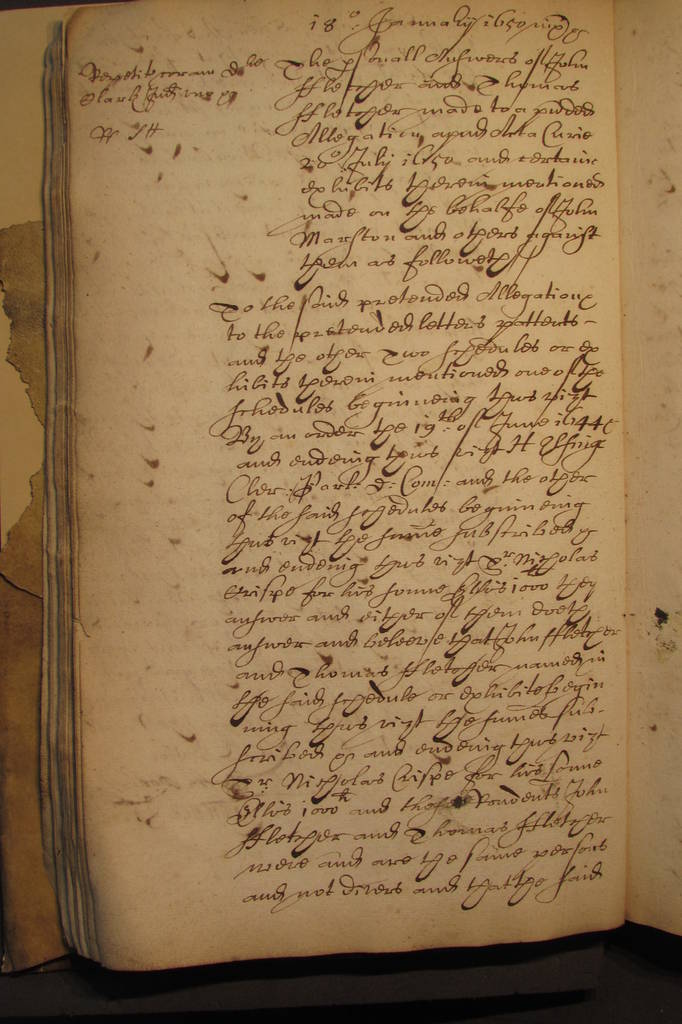 18°: January 1650
Repetit coram d re
Clark
The p'sonall Answers of John
ffletcher and Thomas
ffletcher made to a p'tded
Allegation apud Acta Curie
20° July 1650 and certaine
exhibits therein mentioned
made on the behalfe of John
Marston and others against
them as followeth
To the said pretended Allegation
to the pretended letters pattents -
and the other two schedules or ex
hibits therein mentioned one of the
schedules beginning thus vizt
By an order the 19th of June 1644
and ending thus vizt H Elsing
Cler: Parl: d: Com: and the other
of the said schedules beginning
thus vizt the summe subscribed
and ending thus vizt Sr. Nicholas
Crispe for his sonne Ellis 1000 they
answer and either of them doeth
answer and beleeve that John ffletcher
and Thomas ffletcher named in
the said schedule or exhibite begin
ning thus vizt the summes sub-
scribed and ending thus vizt
Sr. Nicholas Crispe for his sonne
Ellis 1000 and these Rondents John
ffletcher and Thomas ffletcher
were and are the same persons
and not divers and that the said